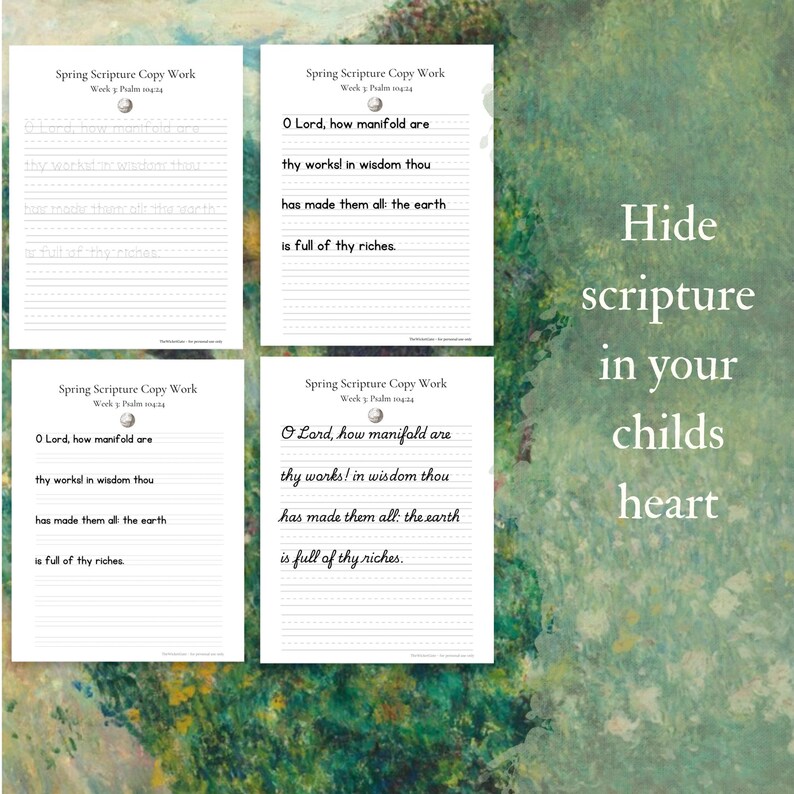 Spring Scripture Copy Work
Week 3: Psalm 104:24
O Lord, how manifold are
thy works! in wisdom thou
has made them all: the earth
is full of thy riches.
TheWicketGate ~ for personal use only
Spring Scripture Copy Work
Week 3: Psalm 104:24
O Lord, how manifold are
thy works! in wisdom thou
has made them all: the earth
is full of thy riches.
TheWicketGate ~ for personal use only
Spring Scripture Copy Work
Week 3: Psalm 104:24
O Lord, how manifold are
thy works! in wisdom thou
has made them all: the earth
is full of thy riches.
TheWicketGate ~ for personal use only
Spring Scripture Copy Work
Week 3: Psalm 104:24
O Lord, how manifold are
thy works! in wisdom thou
has made them all: the earth
is full of thy riches.
TheWicketGate ~ for personal use only
Hide
scripture
in your
childs
heart